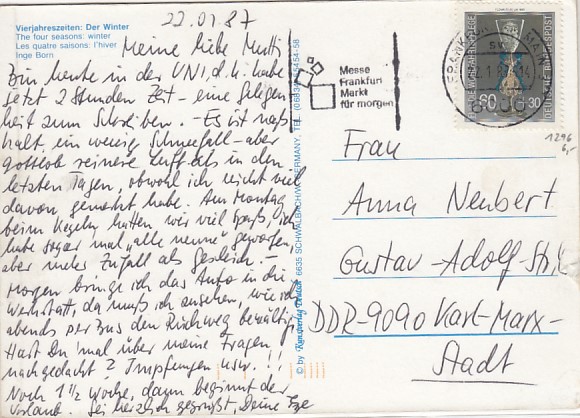 Vierjahreszeiten: Der Winter
The four seasons: winter
Les quatre saisons: l'hiver
Inge Born
22.01.87
Meine liebe Mutti
Bin heute in der UNI, d.h. habe
jetzt 2 Stunden Zeit – eine Gelegen-
heit zum Schreiben. – Es ist naß-
kalt, ein wenig Schneefall – aber
gottlob reinere Luft als in den
letzten Tagen, obwohl ich nicht viel
davon gemerkt habe. Am Montag
beim Kegeln hatten wir viel Spaß, ich
habe sogar mal "alle neune" geworfen,
aber mehr Zufall als Geschick. –
Morgen bringe ich das Auto in die
Werkstatt, da muß ich ansehen, wie ich
abends per Bus den Rückweg bewältige.
Hast Du 'mal über meine Fragen
nachgedacht ? Impfungen usw. !!
Noch 1 1/2 Woche, dann beginnt der
Urlaub. Sei herzlich gegrüßt, Deine
© by 6635 SCHWALBACH/W-GERMANY, TEL.
Messe
Frankfurt
Markt
für morgen
60
30
DEUTSCHE BUNDESPOST
1296
6,-
Frau
Anna Neubert
Gustav-Adolf-Str.
DDR-9090 Karl-Marx-
Stadt